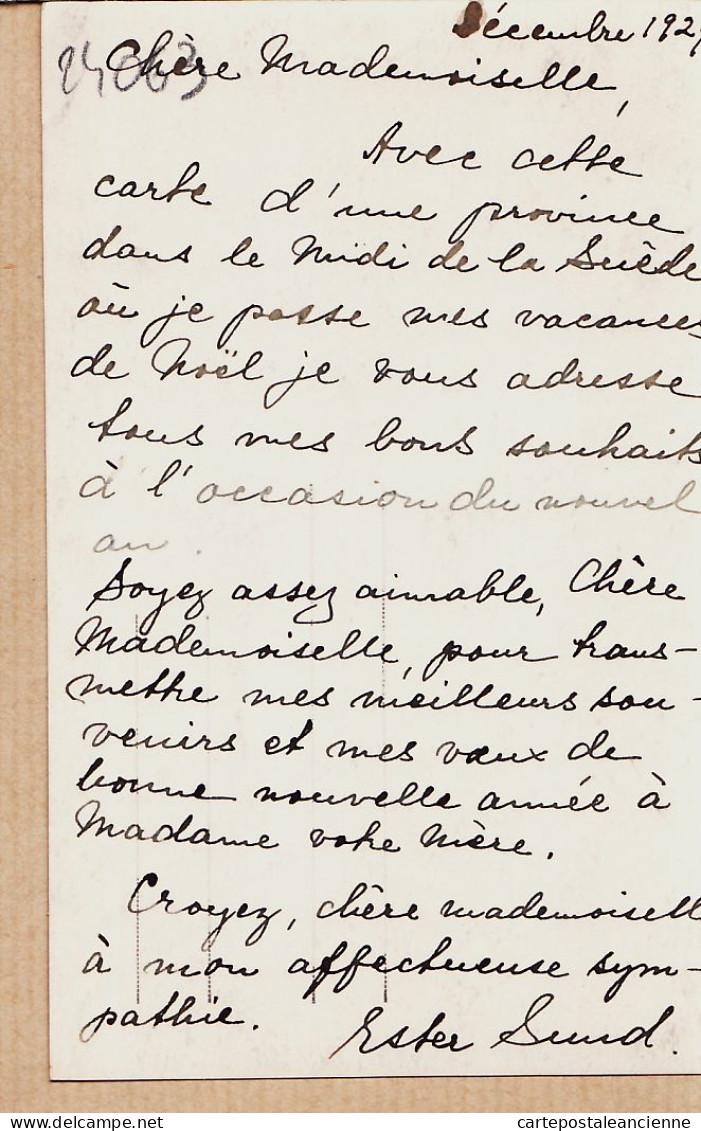 Décembre 192
Chère Mademoiselle,
Avec cette
carte d'une province
dans le Midi de la Suède
où je passe mes vacances
de Noël je vous adresse
tous mes bons souhaits
à l'occasion du nouvel
an.
Soyez assez aimable, Chère
Mademoiselle, pour trans-
mettre mes meilleurs sou-
venirs et mes vœux de
bonne nouvelle année à
Madame votre Mère.
Croyez, chère mademoisell
à mon affectueuse sym-
pathie.
Ester Sund.
delcampe.net
cartepostaleancienne